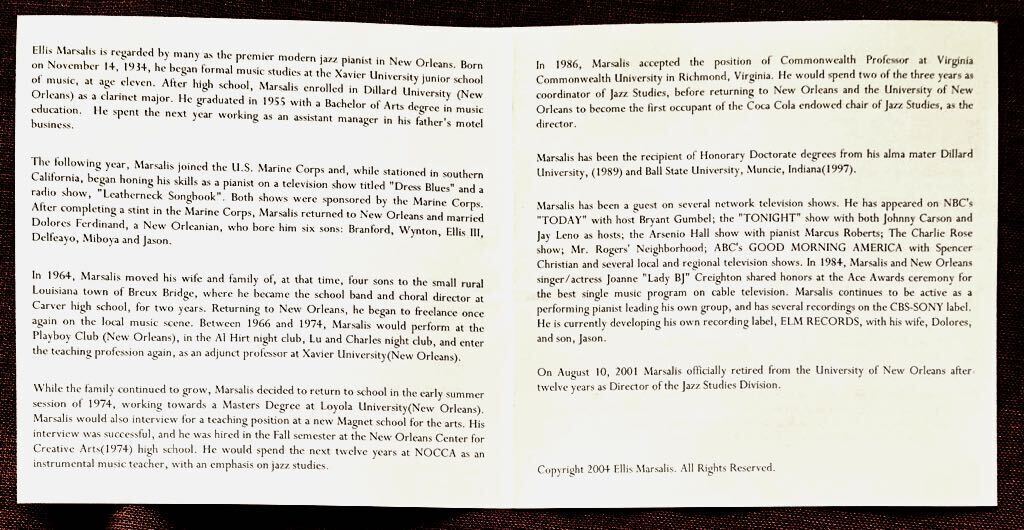 Ellis Marsalis is regarded by many as the premier modern jazz pianist in New Orleans. Born
on November 14, 1934, he began formal music studies at the Xavier University junior school
of music, at age eleven. After high school, Marsalis enrolled in Dillard University (New
Orleans) as a clarinet major. He graduated in 1955 with a Bachelor of Arts degree in music
education. He spent the next year working as an assistant manager in his father's motel
business.
The following year, Marsalis joined the U.S. Marine Corps and, while stationed in southern
California, began honing his skills as a pianist on a television show titled "Dress Blues" and a
radio show, "Leatherneck Songbook". Both shows were sponsored by the Marine Corps.
After completing a stint in the Marine Corps, Marsalis returned to New Orleans and married
Dolores Ferdinand, a New Orleanian, who bore him six sons: Branford, Wynton, Ellis III,
Delfeayo, Miboya and Jason.
In 1964, Marsalis moved his wife and family of, at that time, four sons to the small rural
Louisiana town of Breux Bridge, where he became the school band and choral director at
Carver high school, for two years. Returning to New Orleans, he began to freelance once
again on the local music scene. Between 1966 and 1974, Marsalis would perform at the
Playboy Club (New Orleans), in the Al Hirt night club, Lu and Charles night club, and enter
the teaching profession again, as an adjunct professor at Xavier University(New Orleans).
While the family continued to grow, Marsalis decided to return to school in the early summer
session of 1974, working towards a Masters Degree at Loyola University(New Orleans).
Marsalis would also interview for a teaching position at a new Magnet school for the arts. His
interview was successful, and he was hired in the Fall semester at the New Orleans Center for
Creative Arts(1974) high school. He would spend the next twelve years at NOCCA as an
instrumental music teacher, with an emphasis on jazz studies.
In 1986, Marsalis accepted the position of Commonwealth Professor at Virginia
Commonwealth University in Richmond, Virginia. He would spend two of the three years as
coordinator of Jazz Studies, before returning to New Orleans and the University of New
Orleans to become the first occupant of the Coca Cola endowed chair of Jazz Studies, as the
director.
Marsalis has been the recipient of Honorary Doctorate degrees from his alma mater Dillard
University, (1989) and Ball State University, Muncie, Indiana(1997).
Marsalis has been a guest on several network television shows. He has appeared on NBC's
"TODAY" with host Bryant Gumbel; the "TONIGHT" show with both Johnny Carson and
Jay Leno as hosts; the Arsenio Hall show with pianist Marcus Roberts; The Charlie Rose
show; Mr. Rogers' Neighborhood; ABC's GOOD MORNING AMERICA with Spencer
Christian and several local and regional television shows. In 1984, Marsalis and New Orleans
singer/actress Joanne "Lady BJ" Creighton shared honors at the Ace Awards ceremony for
the best single music program on cable television. Marsalis continues to be active as a
performing pianist leading his own group, and has several recordings on the CBS-SONY label.
He is currently developing his own recording label, ELM RECORDS, with his wife, Dolores,
and son, Jason.
On August 10, 2001 Marsalis officially retired from the University of New Orleans after
twelve years as Director of the Jazz Studies Division.
Copyright 2004 Ellis Marsalis. All Rights Reserved.